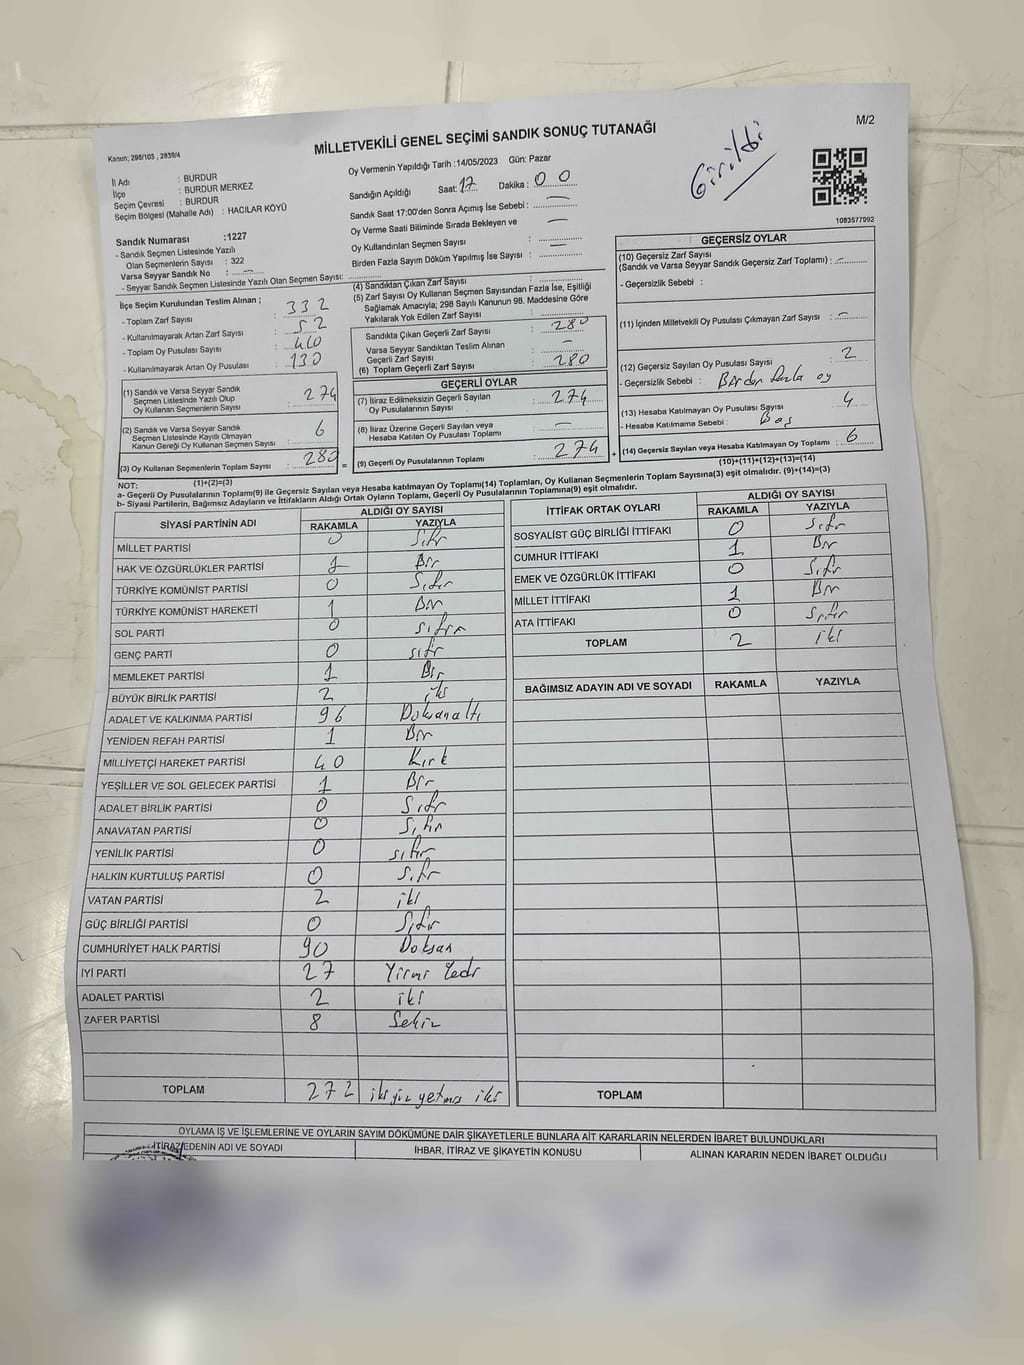 M/2
MİLLETVEKİLİ GENEL SEÇİMİ SANDIK SONUÇ TUTANAĞI
Girildi
Kanun; 298/105 , 2839/4
İl Adı : BURDUR
İlçe : BURDUR MERKEZ
Seçim Çevresi : BURDUR
Seçim Bölgesi (Mahalle Adı) : HACILAR KÖYÜ
Oy Vermenin Yapıldığı Tarih :14/05/2023 Gün: Pazar
Sandığın Açıldığı Saat: 17 Dakika : 00
Sandık Saat 17:00'den Sonra Açımış İse Sebebi : —
Oy Verme Saati Bitiminde Sırada Bekleyen ve
Oy Kullandırılan Seçmen Sayısı : —
Birden Fazla Sayım Döküm Yapılmış İse Sayısı : —
1083577992
Sandık Numarası :1227
- Sandık Seçmen Listesinde Yazılı
Olan Seçmenlerin Sayısı : 322
Varsa Seyyar Sandık No : —
- Seyyar Seçmen Listesinde Yazılı Olan Seçmen Sayısı:
İlçe Seçim Kurulundan Teslim Alınan ;
- Toplam Zarf Sayısı : 332
- Kullanılmayarak Artan Zarf Sayısı : 52
- Toplam Oy Pusulası Sayısı : 410
- Kullanılmayarak Artan Oy Pusulası : 130
(1) Sandık ve Varsa Seyyar Sandık
Seçmen Listesinde Yazılı Olup
Oy Kullanan Seçmenlerin Sayısı : 274
(2) Sandık ve Varsa Seyyar Sandık
Seçmen Listesinde Kayıtlı Olmayan
Kanun Gereği Oy Kullanan Seçmen Sayısı : 6
(3) Oy Kullanan Seçmenlerin Toplam Sayısı : 280
(1)+(2)=(3)
(4) Sandıktan Çıkan Zarf Sayısı :
(5) Zarf Sayısı Oy Kullanan Seçmen Sayısından Fazla İse, Eşitliği
Sağlamak Amacıyla; 298 Sayılı Kanunun 98. Maddesine Göre
Yakılarak Yok Edilen Zarf Sayısı :
Sandıkta Çıkan Geçerli Zarf Sayısı : 280
Varsa Seyyar Sandıktan Teslim Alınan
Geçerli Zarf Sayısı : —
(6) Toplam Geçerli Zarf Sayısı : 280
GEÇERLİ OYLAR
(7) İtiraz Edilmeksizin Geçerli Sayılan
Oy Pusulalarının Sayısı : 274
(8) İtiraz Üzerine Geçerli Sayılan veya
Hesaba Katılan Oy Pusulası Toplamı : —
= (9) Geçerli Oy Pusulalarının Toplamı : 274 +
GEÇERSİZ OYLAR
(10) Geçersiz Zarf Sayısı
(Sandık ve Varsa Seyyar Sandık Geçersiz Zarf Toplamı) : —
- Geçersizlik Sebebi :
(11) İçinden Milletvekili Oy Pusulası Çıkmayan Zarf Sayısı : —
(12) Geçersiz Sayılan Oy Pusulası Sayısı : 2
- Geçersizlik Sebebi : Birden fazla oy
(13) Hesaba Katılmayan Oy Pusulası Sayısı : 4
- Hesaba Katılmama Sebebi : Boş
(14) Geçersiz Sayılan veya Hesaba Katılmayan Oy Toplamı : 6
(10)+(11)+(12)+(13)=(14)
NOT:
a- Geçerli Oy Pusulalarının Toplamı(9) ile Geçersiz Sayılan veya Hesaba katılmayan Oy Toplamı(14) Toplamları, Oy Kullanan Seçmenlerin Toplam Sayısına(3) eşit olmalıdır. (9)+(14)=(3)
b- Siyasi Partilerin, Bağımsız Adayların ve İttifakların Aldığı Ortak Oyların Toplamı, Geçerli Oy Pusulalarının Toplamına(9) eşit olmalıdır.
SİYASİ PARTİNİN ADI ALDIĞI OY SAYISI
RAKAMLA YAZIYLA
MİLLET PARTİSİ 0 Sıfır
HAK VE ÖZGÜRLÜKLER PARTİSİ 1 Bir
TÜRKİYE KOMÜNİST PARTİSİ 0 Sıfır
TÜRKİYE KOMÜNİST HAREKETİ 1 Bir
SOL PARTİ 0 sıfır
GENÇ PARTİ 0 sıfır
MEMLEKET PARTİSİ 1 Bir
BÜYÜK BİRLİK PARTİSİ 2 iki
ADALET VE KALKINMA PARTİSİ 96 Doksanaltı
YENİDEN REFAH PARTİSİ 1 Bir
MİLLİYETÇİ HAREKET PARTİSİ 40 Kırk
YEŞİLLER VE SOL GELECEK PARTİSİ 1 Bir
ADALET BİRLİK PARTİSİ 0 Sıfır
ANAVATAN PARTİSİ 0 Sıfır
YENİLİK PARTİSİ 0 sıfır
HALKIN KURTULUŞ PARTİSİ 0 sıfır
VATAN PARTİSİ 2 iki
GÜÇ BİRLİĞİ PARTİSİ 0 Sıfır
CUMHURİYET HALK PARTİSİ 90 Doksan
İYİ PARTİ 27 Yirmi Yedi
ADALET PARTİSİ 2 iki
ZAFER PARTİSİ 8 Sekiz
TOPLAM 272 iki yüz yetmiş iki
İTTİFAK ORTAK OYLARI ALDIĞI OY SAYISI
RAKAMLA YAZIYLA
SOSYALİST GÜÇ BİRLİĞİ İTTİFAKI 0 Sıfır
CUMHUR İTTİFAKI 1 Bir
EMEK VE ÖZGÜRLÜK İTTİFAKI 0 Sıfır
MİLLET İTTİFAKI 1 Bir
ATA İTTİFAKI 0 Sıfır
TOPLAM 2 iki
BAĞIMSIZ ADAYIN ADI VE SOYADI RAKAMLA YAZIYLA
TOPLAM
OYLAMA İŞ VE İŞLEMLERİNE VE OYLARIN SAYIM DÖKÜMÜNE DAİR ŞİKAYETLERLE BUNLARA AİT KARARLARIN NELERDEN İBARET BULUNDUKLARI
İTİRAZ EDENİN ADI VE SOYADI İHBAR, İTİRAZ VE ŞİKAYETİN KONUSU ALINAN KARARIN NEDEN İBARET OLDUĞU